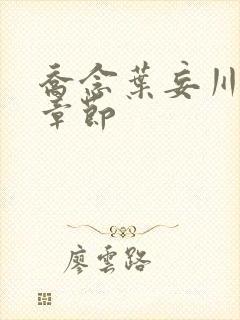 乔念葉妄川
章節
廖雲路